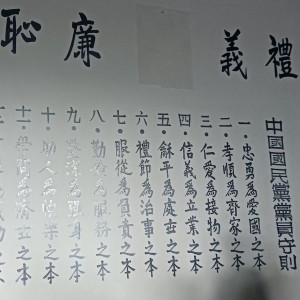 禮義廉恥
中國國民黨黨員守則
一・忠勇為愛國之本
二・孝順為齊家之本
三・仁愛為接物之本
四・信義為立業之本
五・龢平為處世之本
六・禮節為治事之本
七・服從為負責之本
八・勤儉為服務之本
九・整潔為強身之本
十・助人為快樂之本
十一・學問為濟世之本